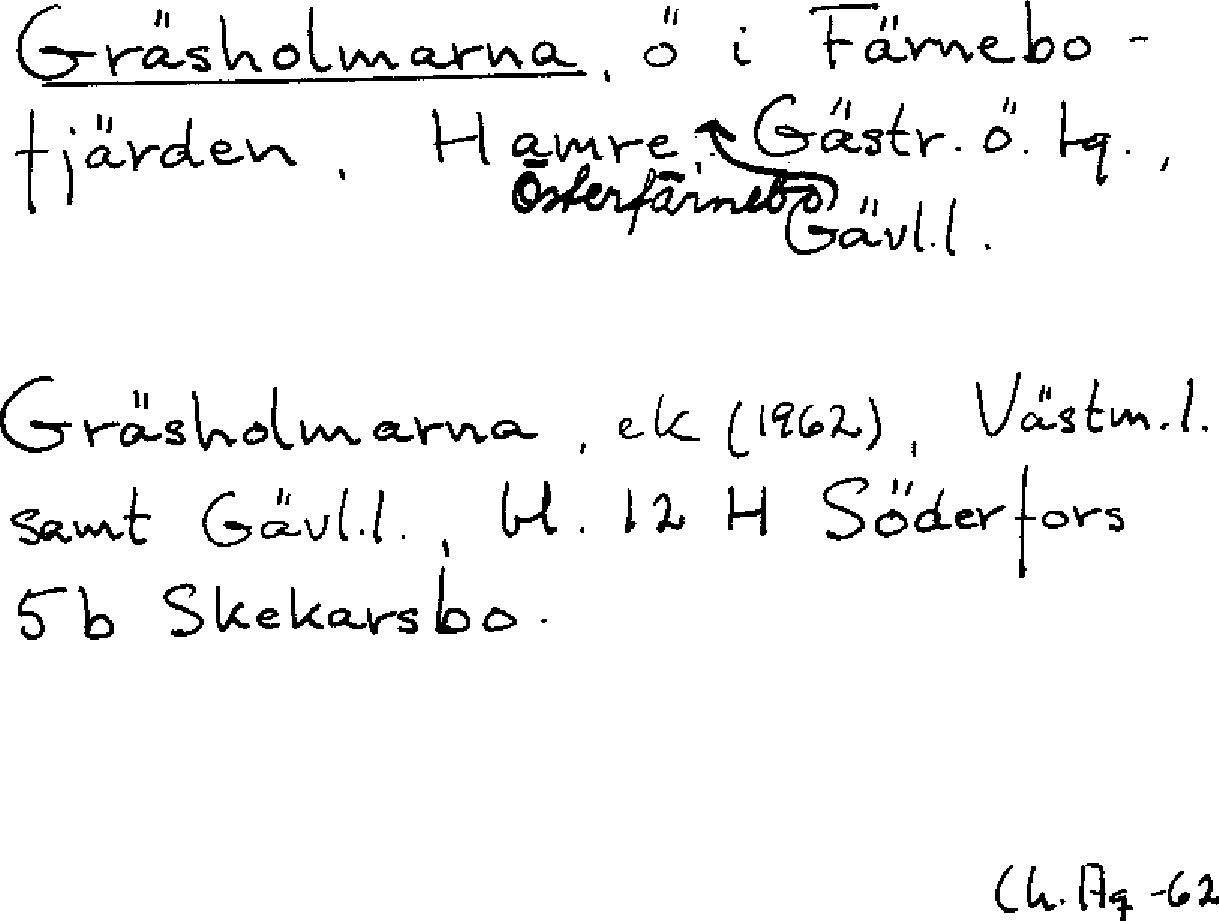 Gräsholmarna, ö i Färnebo-
fjärden. Hamre, Gästr. ö. tg.,
Österfärnebo
Gävl.l.
Gräsholmarna, ek (1962), Västm.l.
samt Gävl.l., bl. 12 H Söderfors
5b Skekarsbo.
Ch. Ag -62